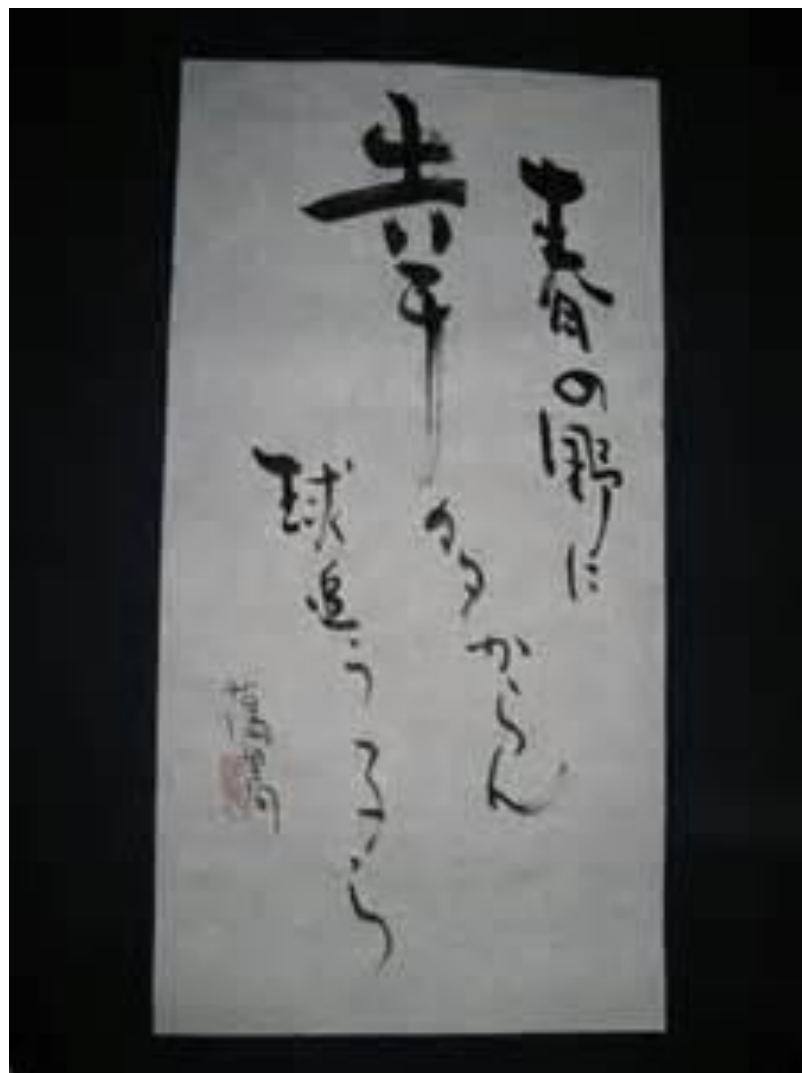 春の野に
幸多からん
球追うつら